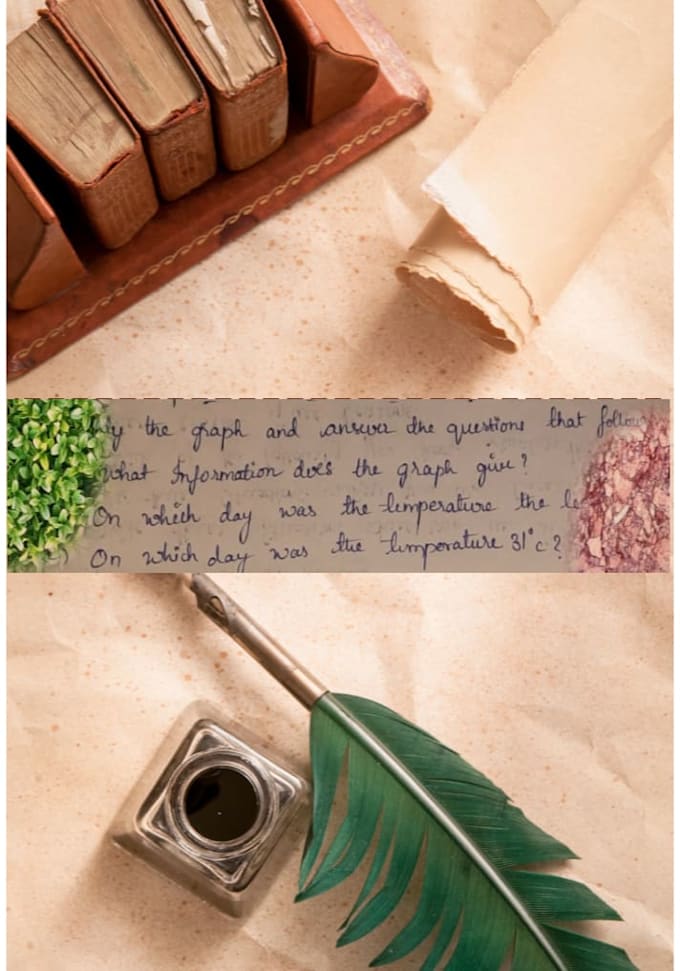 the graph and answer the questions that follow
what Information does the graph give?
On which day was the temperature the
On which day was the temperature 31°c?